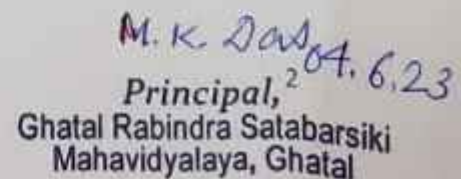 M. K. Das 04.6.23
Principal, 2
Ghatal Rabindra Satabarsiki
Mahavidyalaya, Ghatal